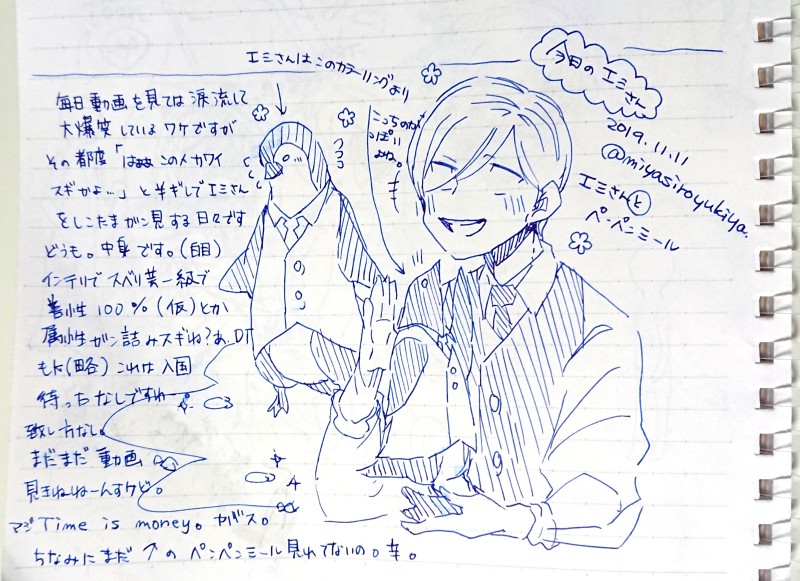 エミさんはこのカラーリングより
今日のエミさん
2019.11.11
@miyasiroyukiya.
エミさんと
ペンペンミール
こっちのが
っぽい
よね。
毎日動画を見ては涙流して
大爆笑しているワケですが
その都度「はぁぁこのメカワイ
スギかよ…」と半ギレでエミさん
をしこたまガン見する日々です
どうも。中身です。(白目)
インテリでスベリ芸一級で
善性100%(仮)とか
属性ガン詰みスギね?あ、DT
もか(略)これは入国
待ったなしですわー
致し方なし。
まだまだ動画
見きねねーんすケど。
マジTime is money。ヤバス。
ちなみにまだ↑のペンペンミール見れてないの。幸。